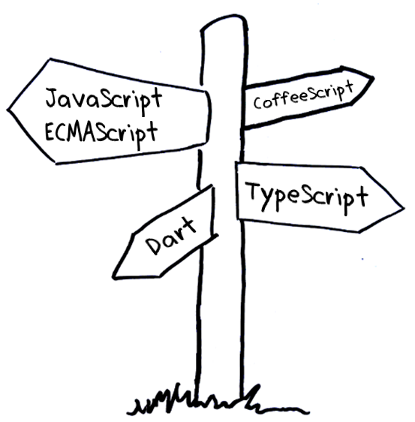 JavaScript
ECMAScript
CoffeeScript
TypeScript
Dart